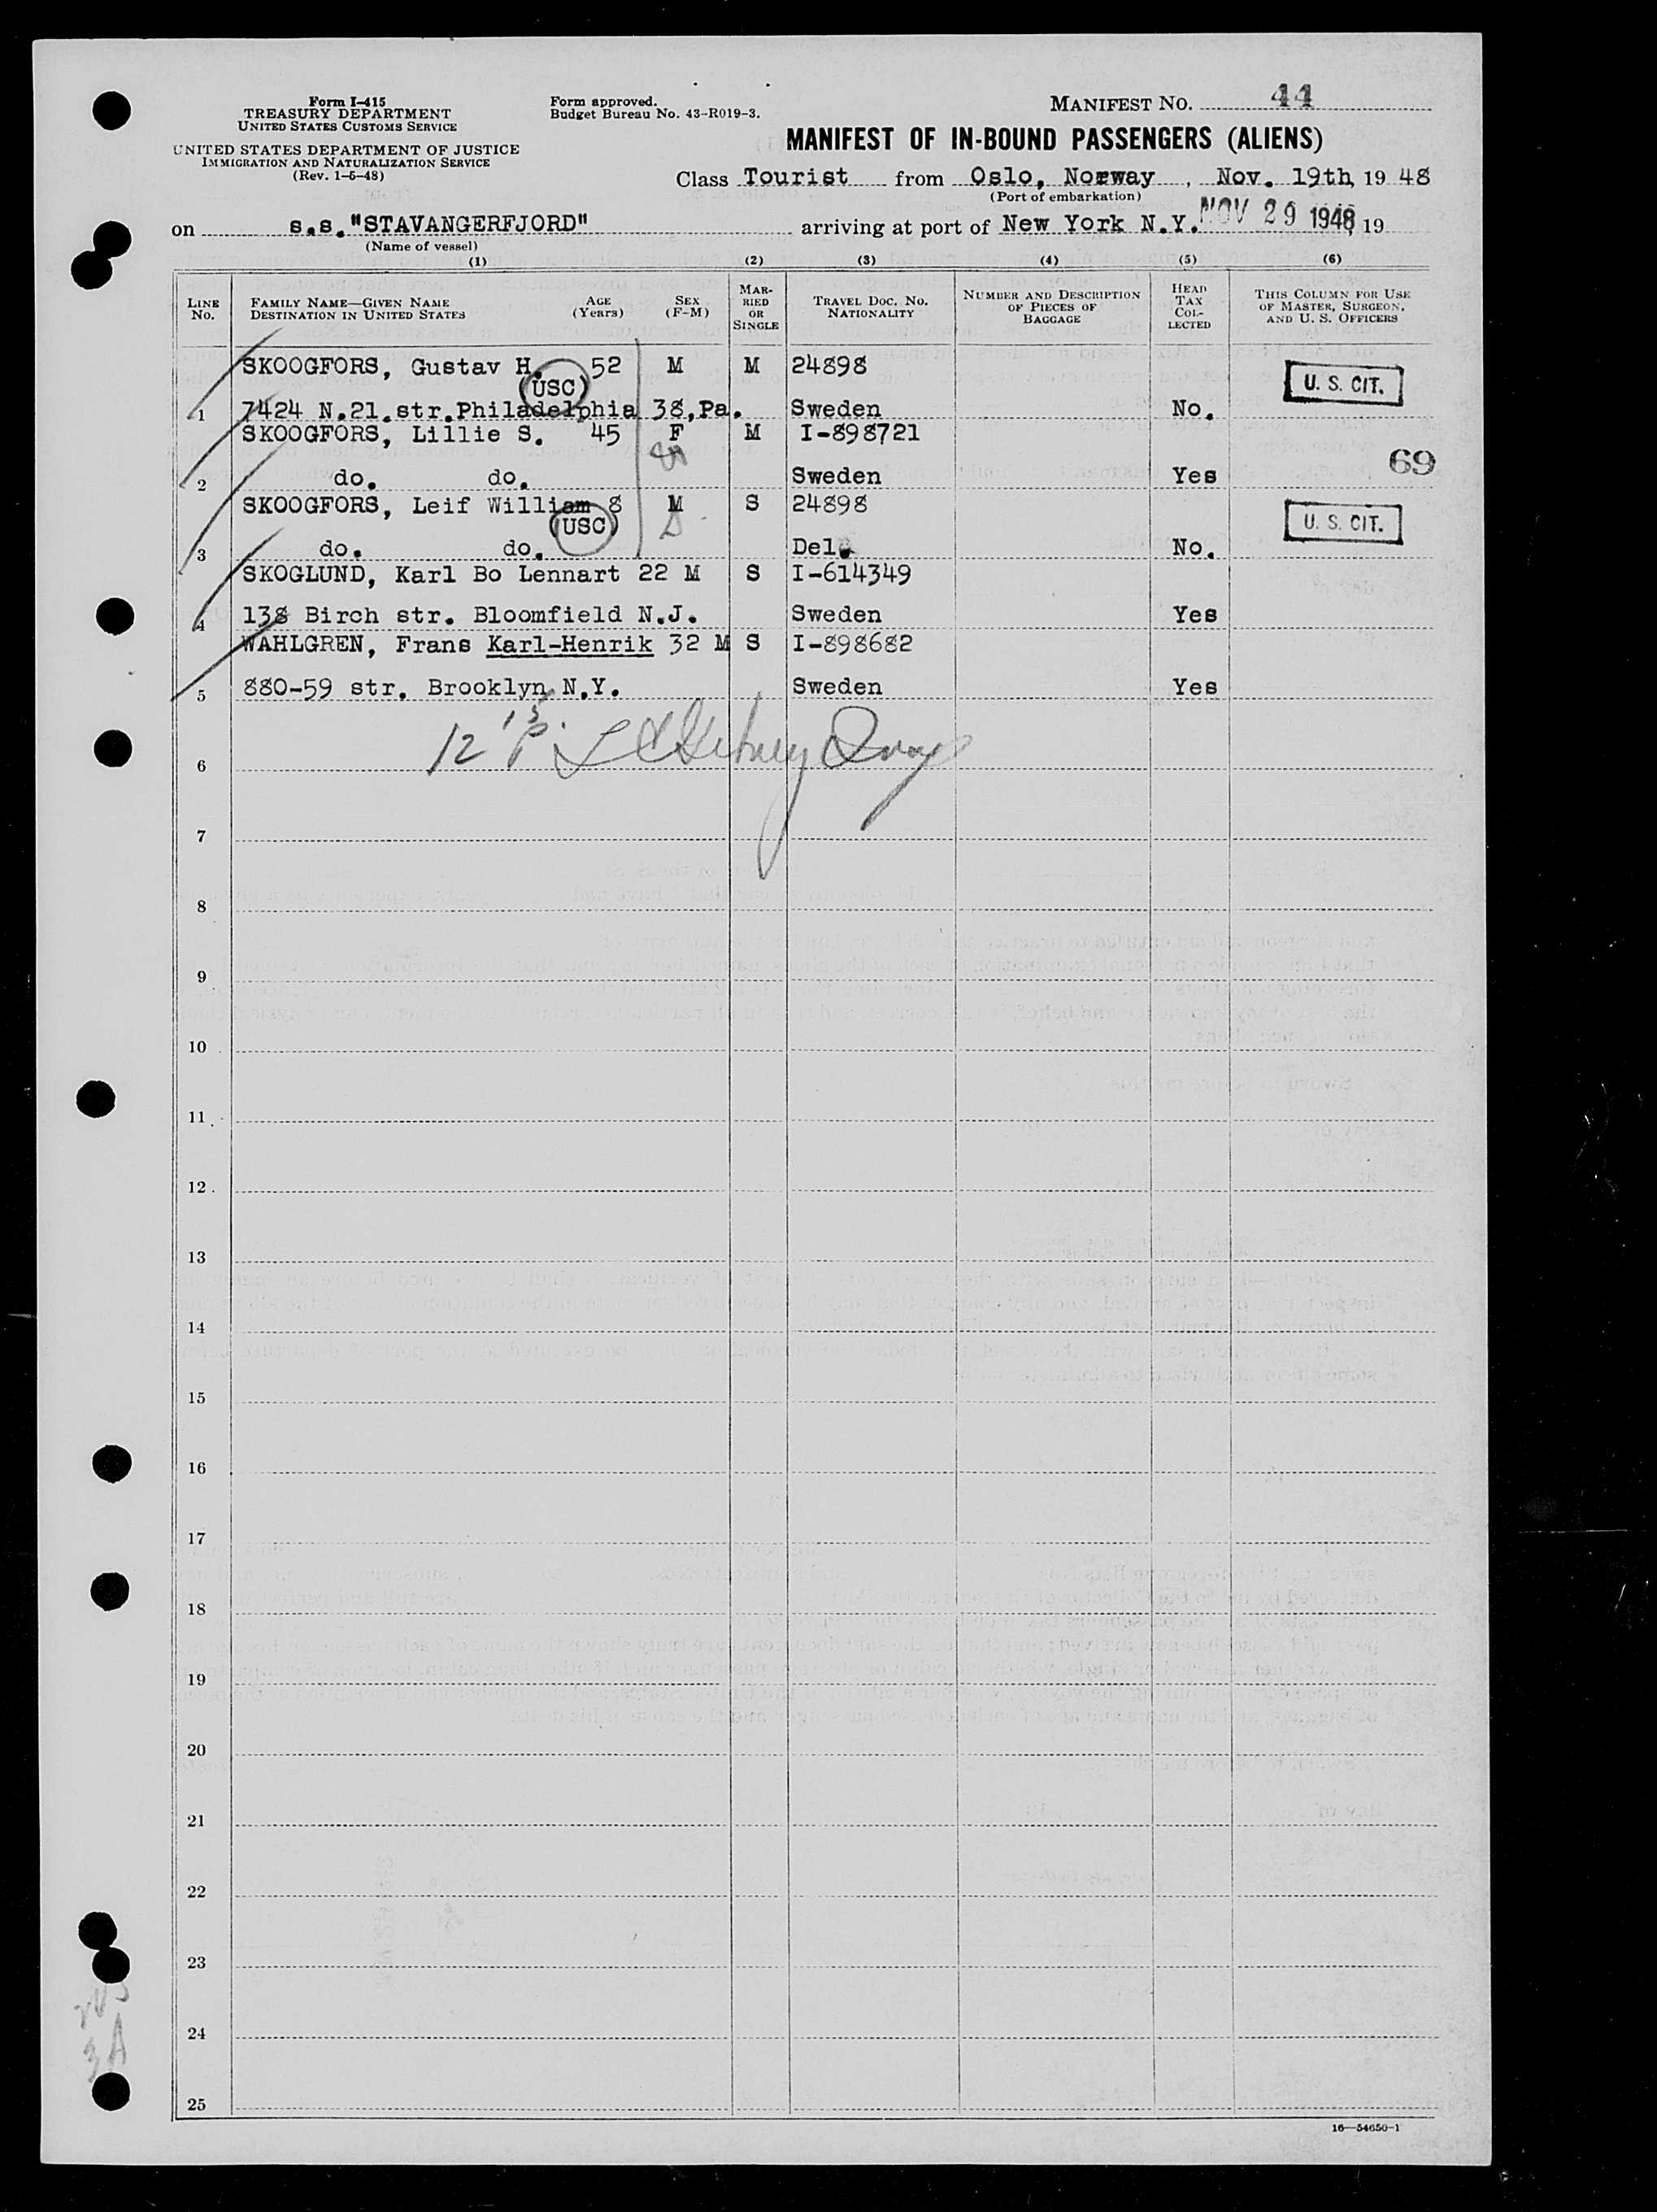 Form I-415
TREASURY DEPARTMENT
UNITED STATES CUSTOMS SERVICE
UNITED STATES DEPARTMENT OF JUSTICE
IMMIGRATION AND NATURALIZATION SERVICE
(Rev. 1-5-48)
Form approved.
Budget Bureau No. 43-R019-3.
MANIFEST No. 44
MANIFEST OF IN-BOUND PASSENGERS (ALIENS)
Class Tourist from Oslo, Norway, Nov. 19th, 19 48
(Port of embarkation)
on s.s."STAVANGERFJORD" arriving at port of New York N.Y. NOV 29 1948, 19
(Name of vessel)
(1) (2) (3) (4) (5) (6)
LINE No. FAMILY NAME—GIVEN NAME DESTINATION IN UNITED STATES AGE (Years) SEX (F-M) MARRIED OR SINGLE TRAVEL DOC. NO. NATIONALITY NUMBER AND DESCRIPTION OF PIECES OF BAGGAGE HEAD TAX COLLECTED THIS COLUMN FOR USE OF MASTER, SURGEON, AND U. S. OFFICERS
SKOOGFORS, Gustav H. 52 M M 24898
USC U. S. CIT.
1 7424 N.21.str.Philadelphia 38,Pa. Sweden No.
SKOOGFORS, Lillie S. 45 F M I-898721
69
2 do. do. Sweden Yes
SKOOGFORS, Leif William 8 M S 24898
USC U. S. CIT.
3 do. do. Del. No.
SKOGLUND, Karl Bo Lennart 22 M S I-614349
4 138 Birch str. Bloomfield N.J. Sweden Yes
WAHLGREN, Frans Karl-Henrik 32 M S I-898682
5 880-59 str. Brooklyn, N.Y. Sweden Yes
12
6
7
8
9
10
11
12
13
14
15
16
17
18
19
20
21
22
23
24
3A
25
16—54650-1